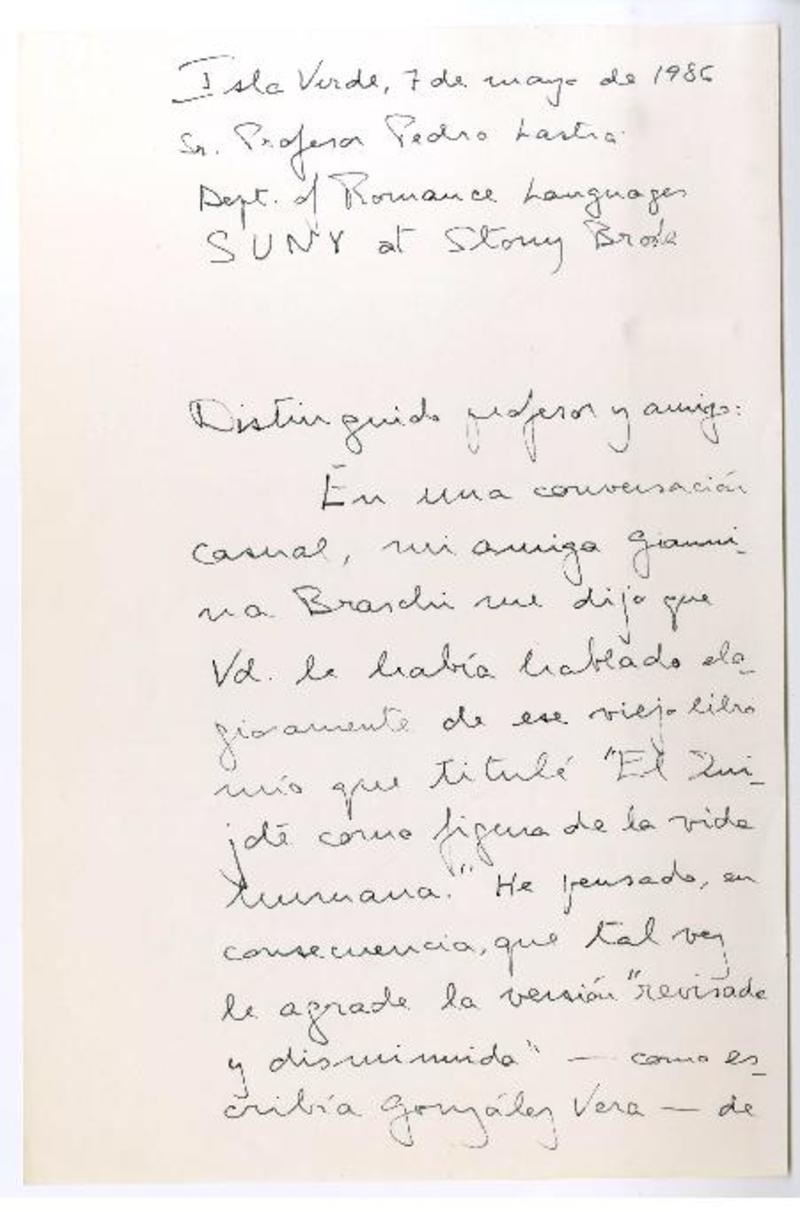 Isla Verde, 7 de mayo de 1986
Sr. Profesor Pedro Lastra
Dept. of Romance Languages
SUNY at Stony Brook
Distinguido profesor y amigo:
En una conversación
casual, mi amiga Gianni-
na Braschi me dijo que
Vd. le había hablado elo-
giosamente de ese viejo libro
mío que titulé "El Qui-
jote como figura de la vida
humana." He pensado, en
consecuencia, que tal vez
le agrade la versión "revisada
y disminuida" — como es-
cribía González Vera — de